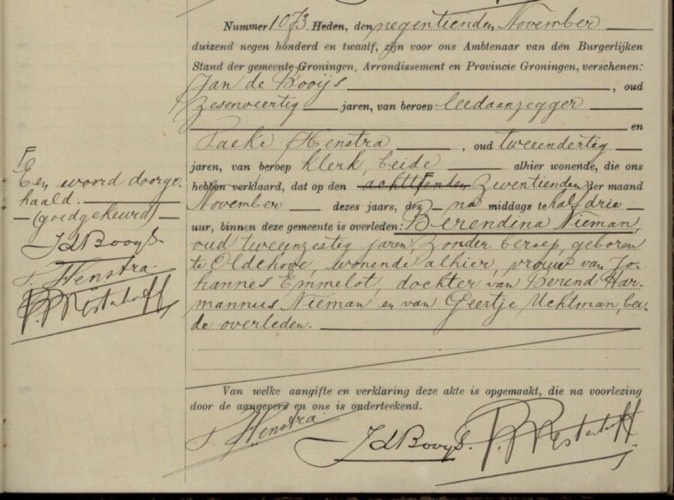 Nummer 1073 Heden, den negentienden November
duizend negen honderd en twaalf, zijn voor ons Ambtenaar van den Burgerlijken
Stand der gemeente Groningen, Arrondissement en Provincie Groningen, verschenen:
Jan de Booijs, oud
zesenveertig jaren, van beroep leedaanzegger
en
Taeke Henstra, oud tweeendertig
jaren, van beroep klerk, beide alhier wonende, die ons
hebben verklaard, dat op den achttienden F zeventienden der maand
November dezes jaars, des na middags te half drie
uur, binnen deze gemeente is overleden: Berendina Nieman,
oud tweeenzestig jaren, zonder beroep, geboren
te Oldehove, wonende alhier, vrouw van Jo-
hannes Emmelot, dochter van Berend Har-
mannus Nieman en van Geertje Uchtman, bei-
de overleden.
F
Een woord doorge-
haald.
(goedgekeurd)
JdBooijs
T. Henstra
Van welke aangifte en verklaring deze akte is opgemaakt, die na voorlezing
door de aangevers en ons is onderteekend.
T. Henstra
JdBooijs